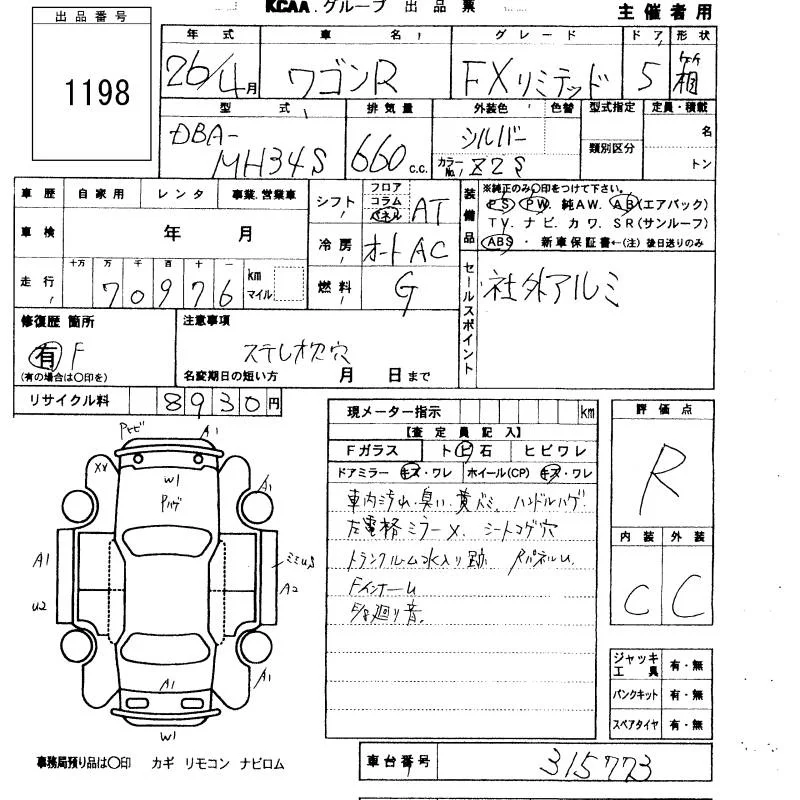 KCAA.グループ 出品票
主催者用
出品番号
1198
年式 車名 グレード ドア 形状
26/4月 ワゴンR FXリミテッド 5 箱
型式 排気量 外装色 色替 型式指定 定員・積載
DBA-
MH34S 660 c.c. シルバー
カラーNo. Z2S
類別区分
名
トン
車歴 自家用 レンタ 事業.営業車
車検 年 月
走行 十万 万 千 百 十 一
70976 km マイル
シフト フロア コラム パネル AT
冷房 オートAC
燃料 G
装備品
※純正のみ○印をつけて下さい。
PS PW 純AW. AB(エアバック)
TV. ナビ. カワ. SR(サンルーフ)
ABS ・ 新車保証書←(注) 後日送りのみ
セールスポイント
社外アルミ
修復歴 箇所
有 F
(有の場合は○印を)
注意事項
ステレオ欠穴
名変期日の短い方 月 日まで
リサイクル料 8930円
現メーター指示 km
【査定員記入】
Fガラス トビ石 ヒビワレ
ドアミラー キズ・ワレ ホイール(CP) キズ・ワレ
車内汚れ.臭い.
ハンドルハゲ
左電格ミラー× シートコゲ穴
トランクルーム水入り跡
評価点
R
内装 外装
C C
A1
XX
W1
Pハゲ
A1
A1
U2
A2
A1
A1
W1
ジャッキ工具 有・無
パンクキット 有・無
スペアタイヤ 有・無
事務局預り品は○印 カギ リモコン ナビロム
車台番号 315773